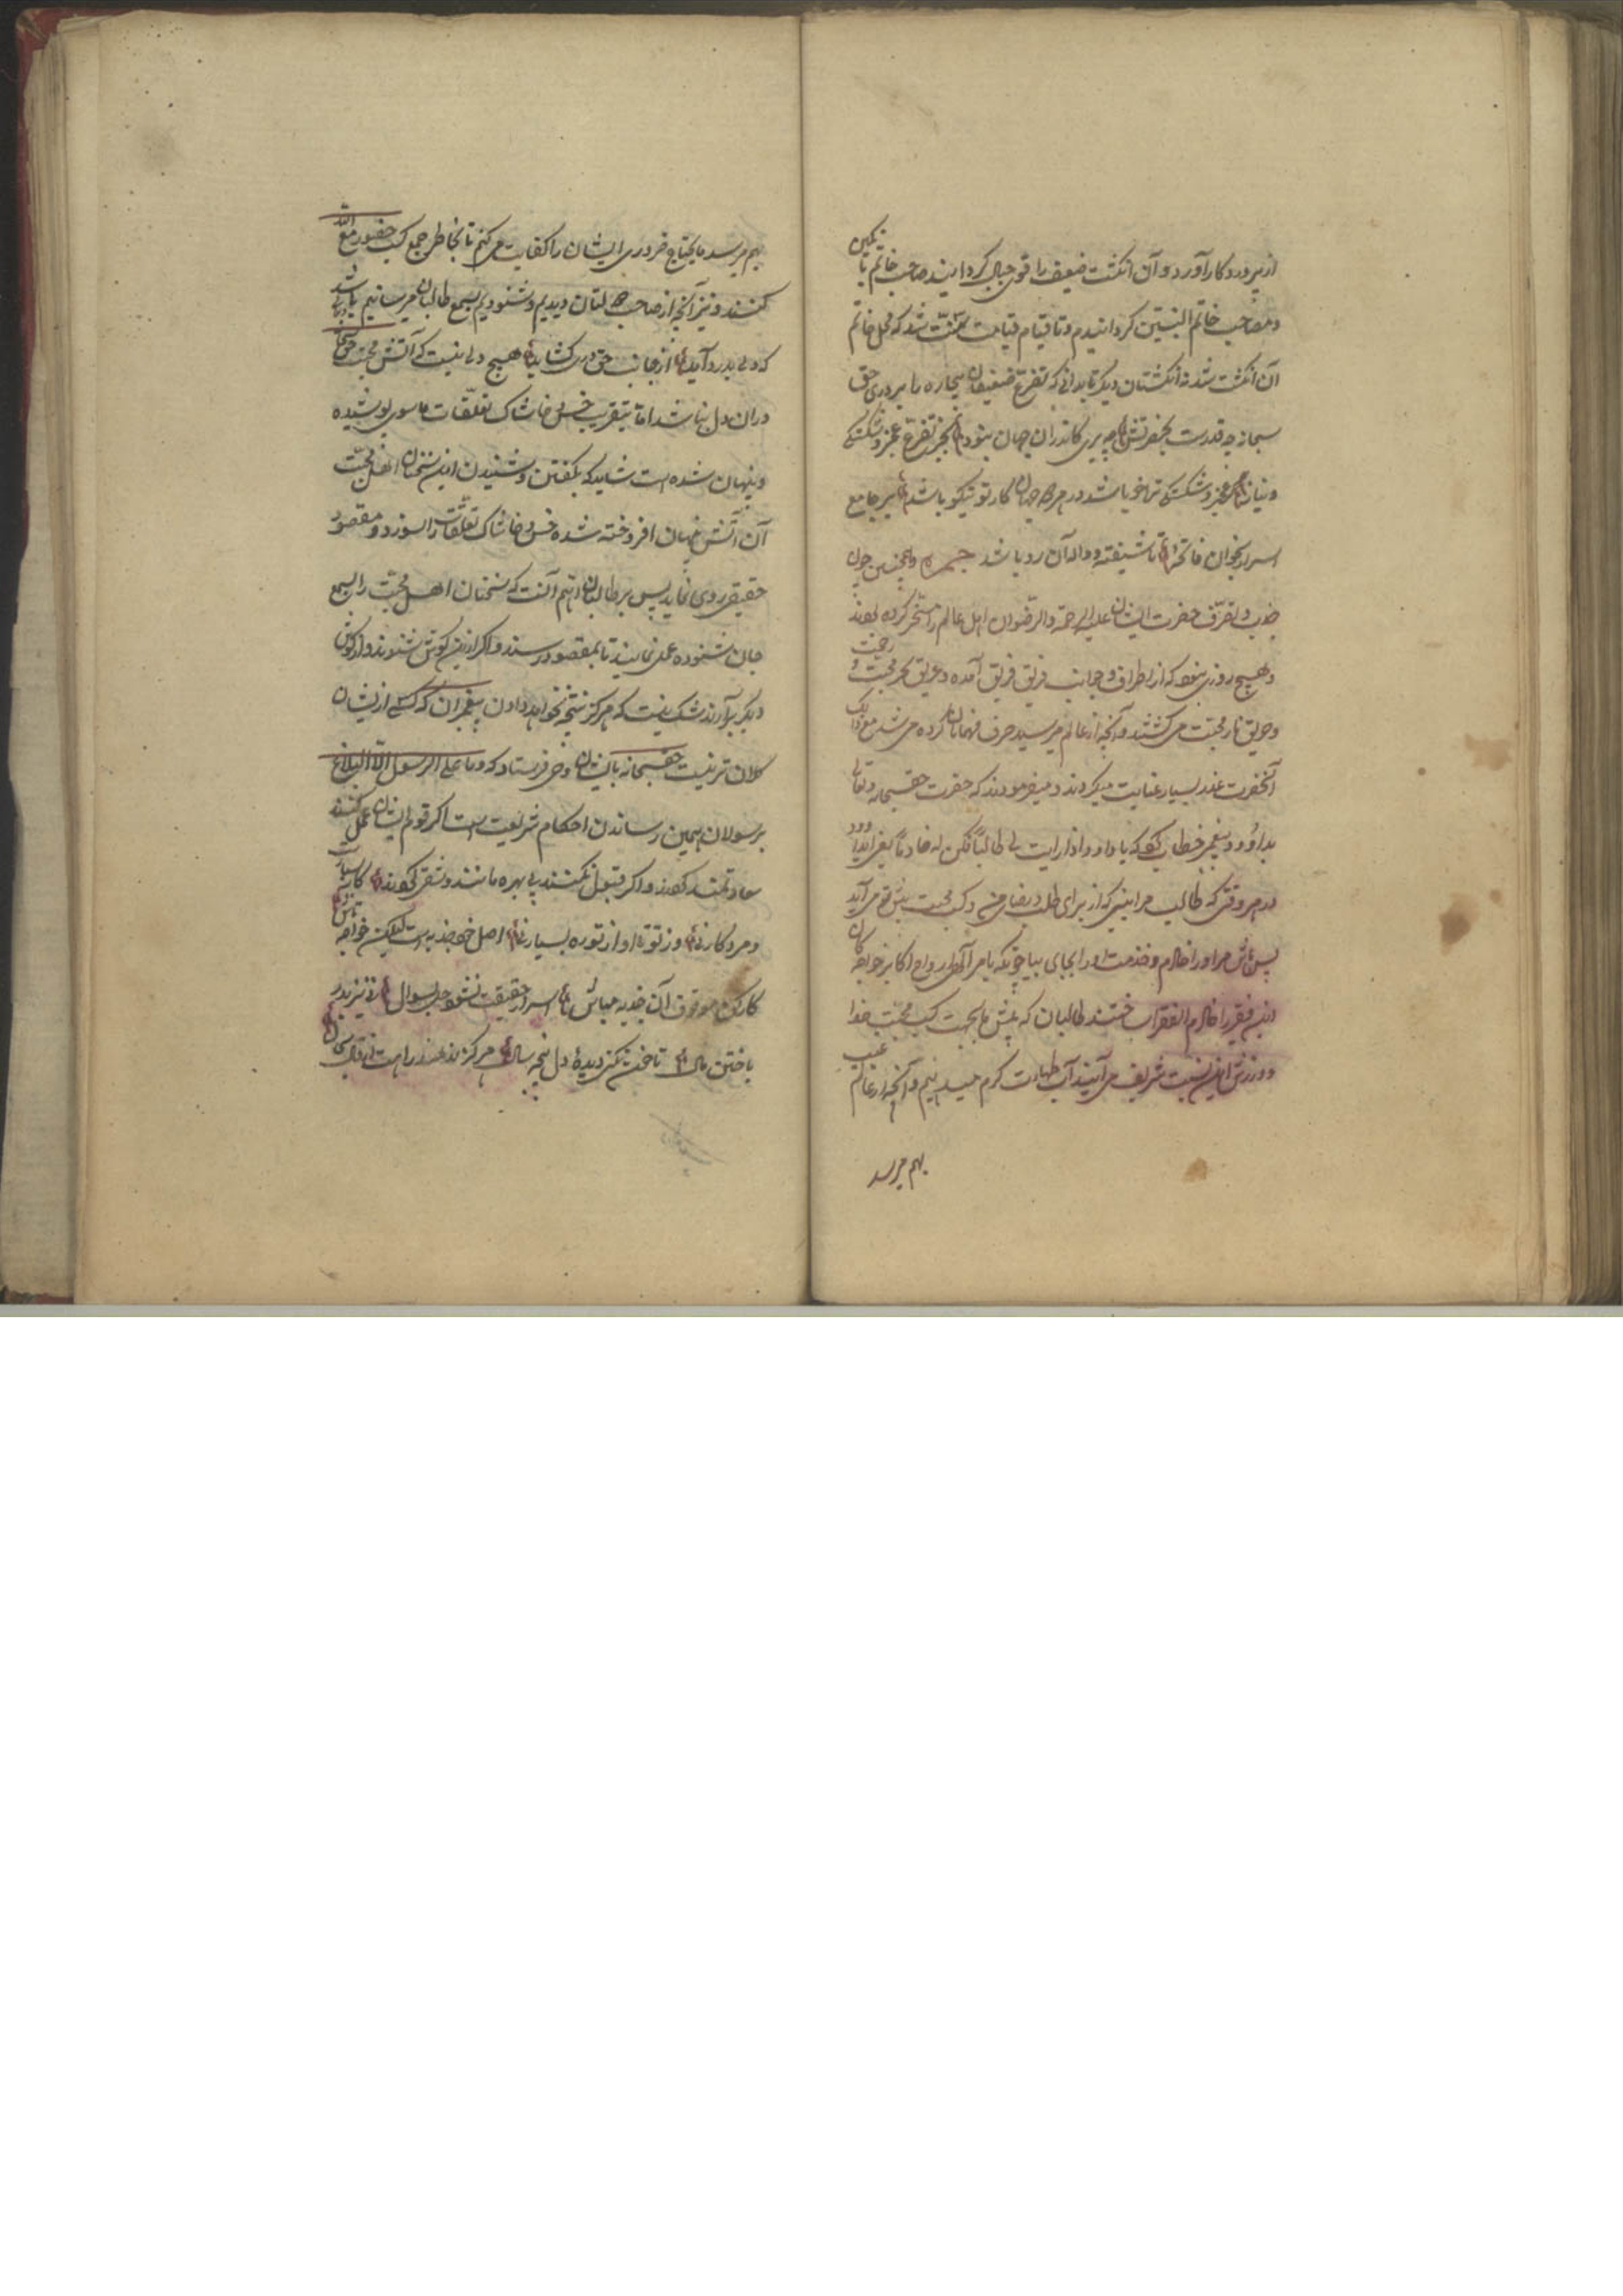 از پروردگار آورد و آن انکشت ضعیف را قوی حال کردانیند صاحب خاتم با تمکین
و مصاحب خاتم النبیین کردانیدم و تا قیام قیامت سنّت شد که محل خاتم
آن انکشت شد نه انکشتان دیکر تا بدانی که تضرع ضعیفان بیچاره را بر در حق
سبحانه چه قدرت بحضرتش چه بری کاندران جهان بنود بجز تضرع و عجز و شکستکی
و نیاز عجز و شکستکی ترا خو باشد در هر دو جهان کار تو نیکو باشد بر جامع
اسرار بخوان فاتحه تا شیفته و واله آن رو باشد همچنین چون
جذب و تصرف حضرت ایشان علیه الرحمة و الرضوان اهل عالم را مسخر کرده بود
و هیچ روزی نبود که از اطراف و جوانب فریق فریق آمده و غریق بحر محبت و
و حریق نار محبت می کشتند و آنچه از عالم میرسید صرف مهمانان کرده می شد مع ذالک
آنحضرت عذر بسیار غایت میکردند و میفرمودند که حضرت حقسبحانه و تعالی
بداؤد پیغمبر خطاب کرد که یا داود اذا رایت لی طالباً فکن له خادماً یعنی ای داود
در هر وقتی که طالب مرا بینی که از برای طلب رضای من و کسب محبت پیش تو می آید
پس باش مر او را خادم و خدمت او را بجای بیا چونکه بامر آلهی ارواح اکابر خواجکان
این فقیر را خادم الفقرا ساختند طالبان که پیش ما بجهت کسب محبت خدا
و ورزش این نسبت شریف می آیند آب طهارت کرم میدهیم و آنچه از عالم غیب
بهم میرسد
بهم میرسد ما یحتاج ضروری ایشان را کفایت می کنم تا بخاطر جمع کسب حضور مع الله
کنند و نیز آنچه از صاحب دلتان دیدیم و شنودیم بسمع طالبان میرسانیم تا باشد
که دلی بدرد آید از جانب حق دری کشاید هیچ دلی نیست که آتش محبت حق
در ان دل نباشد اما بتقریب خس و خاشاک تعلقات ماسوی پوشیده
و پنهان شده است شاید که بکفتن و شنیدن این سخنان اهل محبت
آن آتش پنهان افروخته شده خس و خاشاک تعلقات را سوزد و مقصود
حقیقی روی نماید پس بر طالبان اهم آنست که سخنان اهل محبت را بسمع
جان شنوده عمل نمایند تا بمقصود رسند و اکر ازین کوش شنوند و از کوش
دیکر برآرند شک نیست که هرکز نتیجه نخواهد دادن پیغمبران که کسی از ایشان
کلان تر نیست حقسبحانه بایشان وحی فرستاد که و ما علی الرسول الا البلاغ
بر رسولان همین رساندن احکام شریعت است اکر قوم ایشان عمل کنند
سعادتمند کردند و اکر قبول نکنند بی بهره مانند و شقی کردند کار بسیارست
و مرد کار نی وز توتا او از تو ره بسیار نی اصل خود جذبه است لیکن خواجه تاش
کار کن موقوف آن جذبه مباش اسرار حقیقت نشود حل بسوال نی نیز بدر
باختن مال تا خون نکنی دیده و دل پنجه سال هرکز ندهند راهت از قال بحال